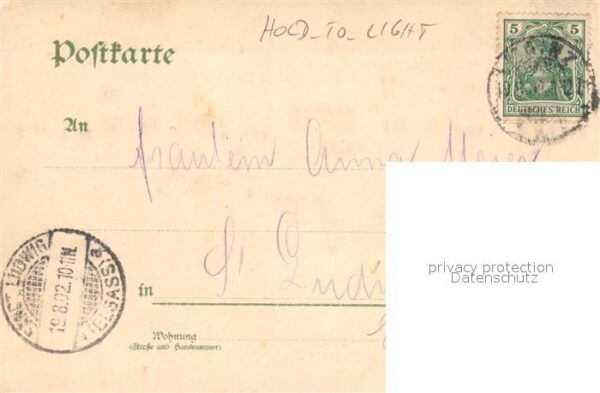 HOLD-TO-LIGHT
Postkarte
5 5
DEUTSCHES REICH
An
Fräulein Anna
St. Ludwig
in
SANKT LUDWIG
19.8.02.10-11N.
(ELSASS) a
Wohnung
(Straße und Hausnummer)
privacy protection
Datenschutz